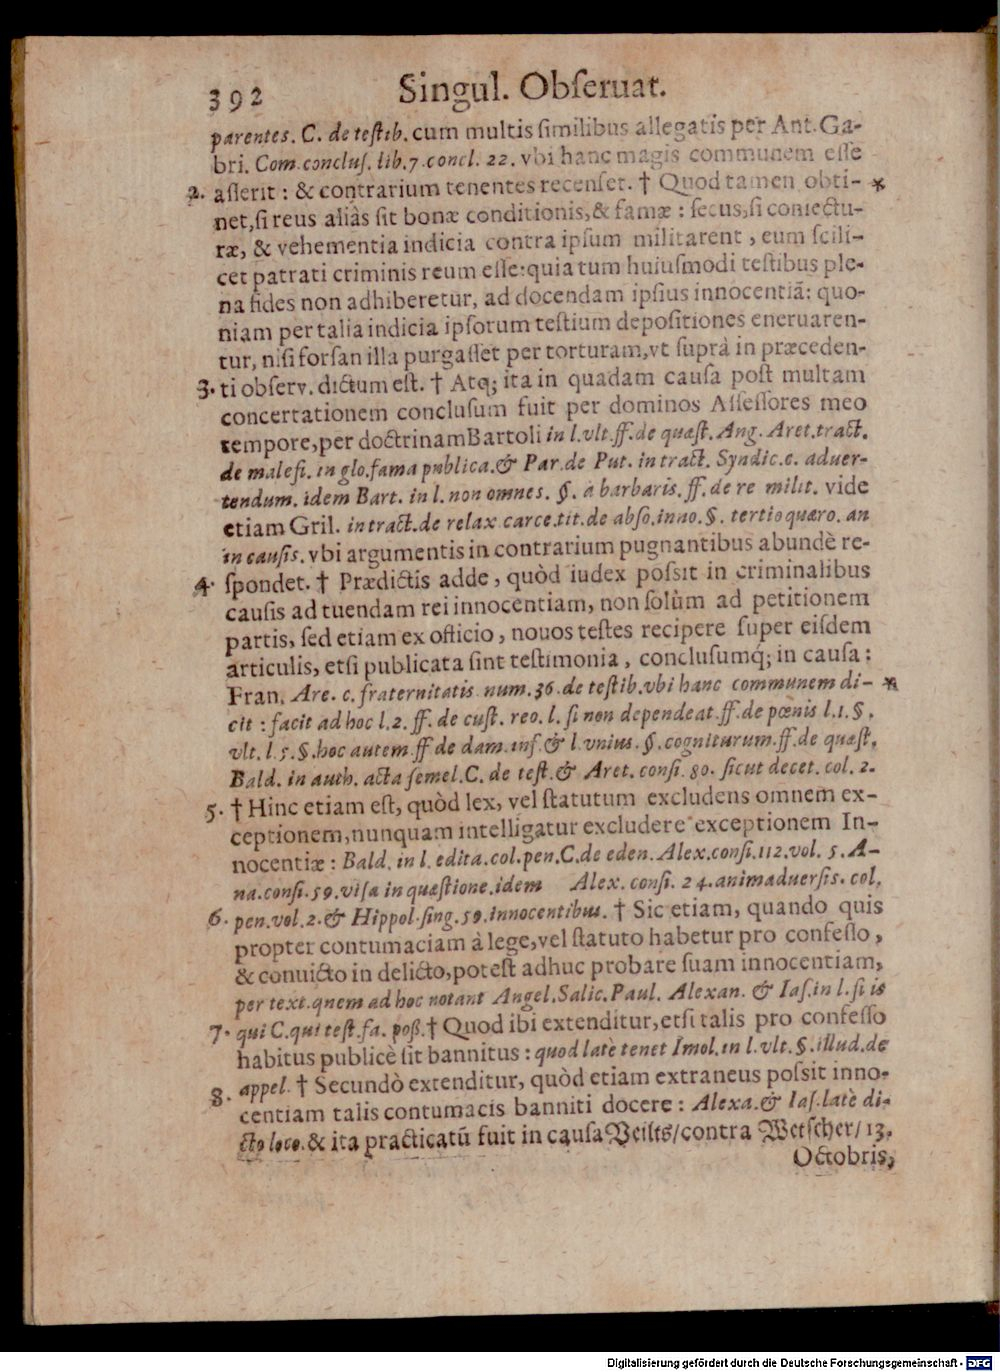 392 Singul. Obſeruat.
parentes. C. de teſtib. cum multis ſimilibus allegatis per Ant. Ga-
bri. Com. concluſ. lib. 7. concl. 22. vbi hanc magis communem eſſe
2. aſſerit : & contrarium tenentes recenſet. † Quod tamen obti- *
net, ſi reus aliàs ſit bonæ conditionis, & famæ : ſecus, ſi coniectu-
ræ, & vehementia indicia contra ipſum militarent, eum ſcili-
cet patrati criminis reum eſſe: quia tum huiuſmodi teſtibus ple-
na fides non adhiberetur, ad docendam ipſius innocentiã: quo-
niam per talia indicia ipſorum teſtium depoſitiones eneruaren-
tur, niſi forſan illa purgaſſet per torturam, vt ſuprà in præceden-
3. ti obſerv. dictum eſt. † Atq; ita in quadam cauſa poſt multam
concertationem concluſum fuit per dominos Aſſeſſores meo
tempore, per doctrinam Bartoli in l. vlt. ff. de quæſt. Ang. Aret. tract.
de malefi. in glo. fama publica. & Par. de Put. in tract. Syndic. c. aduer-
tendum. idem Bart. in l. non omnes. §. à barbaris. ff. de re milit. vide
etiam Gril. in tract. de relax. carce. tit. de abſo. inao. §. tertio quæro. an
in cauſis. vbi argumentis in contrarium pugnantibus abundè re-
4. ſpondet. † Prædictis adde, quòd iudex poſsit in criminalibus
cauſis ad tuendam rei innocentiam, non ſolùm ad petitionem
partis, ſed etiam ex officio, nouos teſtes recipere ſuper eiſdem
articulis, etſi publicata ſint teſtimonia, concluſumq́; in cauſa :
Fran. Are. c. fraternitatis num. 36. de teſtib. vbi hanc communem di- *
cit : facit ad hoc l. 2. ff. de cuſt. reo. l. ſi non dependeat. ff. de pœnis l. 1. §.
vlt. l. 5. §. hoc autem. ff de dam. inf. & l. vnius. §. cogniturum. ff. de quæſt.
Bald. in auth. acta ſemel. C. de teſt. & Aret. conſi. 80. ſicut decet. col. 2.
5. † Hinc etiam eſt, quòd lex, vel ſtatutum excludens omnem ex-
ceptionem, nunquam intelligatur excludere exceptionem In-
nocentiæ : Bald. in l. edita. col. pen. C. de eden. Alex. conſi. 112. vol. 5. A-
na. conſi. 59. viſa in quæſtione. idem Alex. conſi. 24. animaduerſis. col.
6. pen. vol. 2. & Hippol. ſing. 59. innocentibus. † Sic etiam, quando quis
propter contumaciam à lege, vel ſtatuto habetur pro confeſſo,
& conuicto in delicto, poteſt adhuc probare ſuam innocentiam,
per text. quem ad hoc notant Angel. Salic. Paul. Alexan. & Iaſ. in l. ſi is
7. qui C. qui teſt. fa. poß. † Quod ibi extenditur, etſi talis pro confeſſo
habitus publicè ſit bannitus : quod latè tenet Imol. in l. vlt. §. illud. de
8. appel. † Secundò extenditur, quòd etiam extraneus poſsit inno-
centiam talis contumacis banniti docere : Alexa. & Iaſ. latè di-
cto loco. & ita practicatū fuit in cauſa Veilts/ contra Wetſcher/ 13.
Octobris,
Digitalisierung gefördert durch die Deutsche Forschungsgemeinschaft - DFG